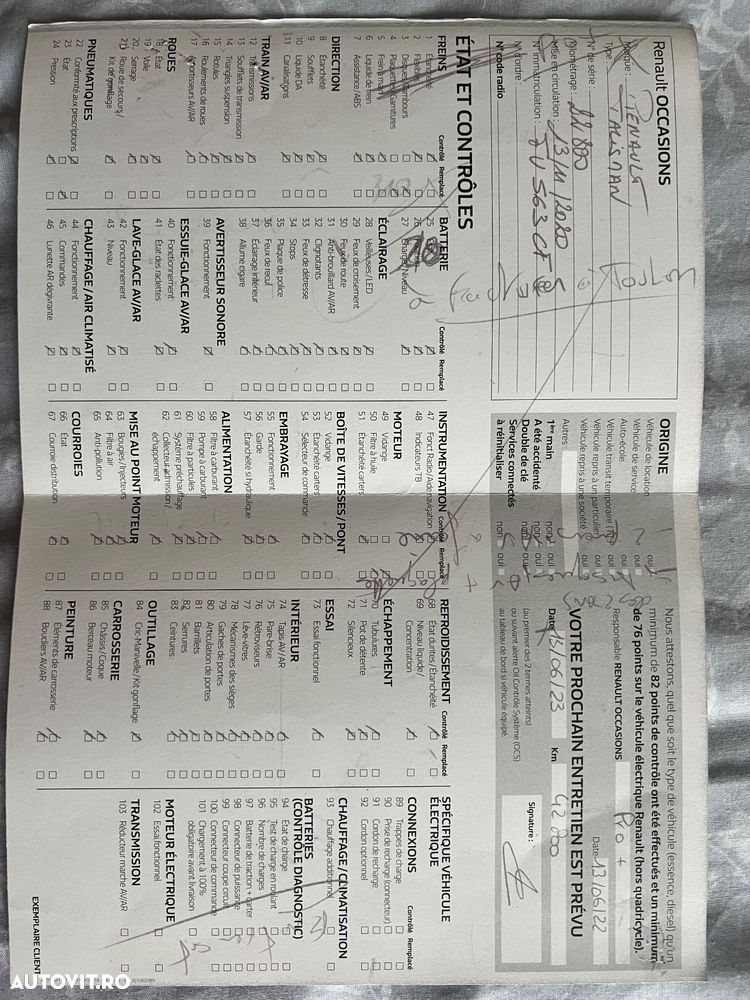 Renault OCCASIONS
Marque : RENAULT
Type : TALISMAN
N° de série :
Kilométrage : 22 800
Mise en circulation : 13/11/2020
N° immatriculation : FV 563 CF
N° d'ordre :
N° code radio
ORIGINE
Véhicule de location
Véhicule de service
Auto-école
Véhicule transit temporaire (TT)
Véhicule repris à un particulier
Véhicule repris à une société
Autres :
1ère main
A été accidenté
Double de clé
Services connectés
à réinitialiser
Nous attestons, quel que soit le type de véhicule (essence, diesel) qu'un
minimum de 82 points de contrôle ont été effectués et un minimum
de 76 points sur le véhicule électrique Renault (hors quadricycle).
Responsable RENAULT OCCASIONS
Pro +
Date 13/06/22
VOTRE PROCHAIN ENTRETIEN EST PRÉVU
Date 13/06/23 Km 42 800
(au premier des 2 termes atteints)
ou suivant alerte Oil Contrôle Système (OCS)
au tableau de bord si véhicule équipé.
Signature :
ÉTAT ET CONTRÔLES
FREINS Contrôlé Remplacé
1 Étanchéité
3 Disques/Tambours
4 Plaquettes/Garnitures
5 Frein à main
6 Liquide de frein
7 Assistance / ABS
DIRECTION
8 Étanchéité
9 Soufflets
10 Liquide DA
11 Canalisations
TRAIN AV/AR
12 Transmissions
13 Soufflets de transmission
14 Triangles suspension
15 Rotules
16 Roulements de roues
17 Amortisseurs AV/AR
ROUES
18 État
19 Voile
20 Serrage
21 Roue de secours /
Kit de gonflage
PNEUMATIQUES
22 Conformité aux prescriptions
23 État
24 Pression
BATTERIE Contrôlé Remplacé
25
26
27 Charge/Niveau
ÉCLAIRAGE
28 Veilleuses / LED
29 Feux de croisement
30 Feux de route
31 Anti-brouillard AV/AR
32 Clignotants
33 Feux de détresse
34 Stops
35 Plaque de police
36 Feux de recul
37 Éclairage intérieur
38 Allume cigare
AVERTISSEUR SONORE
39 Fonctionnement
ESSUIE-GLACE AV/AR
40 Fonctionnement
41 État des raclettes
LAVE-GLACE AV/AR
42 Fonctionnement
43 Niveau
CHAUFFAGE / AIR CLIMATISÉ
44 Fonctionnement
45 Commandes
46 Lunette AR dégivrante
INSTRUMENTATION Contrôlé Remplacé
47 Fonct Radio / Aide navigation
48 Indicateurs TB
MOTEUR
49 Vidange
50 Filtre à huile
51 Étanchéité carters
BOÎTE DE VITESSES / PONT
52 Vidange
53 Étanchéité carters
54 Sélecteur de commande
EMBRAYAGE
55 Fonctionnement
56 Garde
57 Étanchéité si hydraulique
ALIMENTATION
58 Filtre à carburant
59 Pompe à carburant
60 Filtre à particules
61 Système préchauffage
62 Collecteur admission /
échappement
MISE AU POINT MOTEUR
63 Bougies / Injecteurs
64 Filtre à air
65 Anti-pollution
COURROIES
66 État
67 Courroie distribution
REFROIDISSEMENT Contrôlé Remplacé
68 État durites / Étanchéité
69 Niveau liquide /
Concentration
ÉCHAPPEMENT
70 Tubulures
71 Pot de détente
72 Silencieux
ESSAI
73 Essai fonctionnel
INTÉRIEUR
74 Tapis AV / AR
75 Pare-brise
76 Rétroviseurs
77 Lève-vitres
78 Mécanismes des sièges
79 Gâches de portes
80 Articulation de portes
81 Barillets
82 Serrures
83 Ceintures
OUTILLAGE
84 Cric-Manivelle / Kit gonflage
CARROSSERIE
85 Châssis / Coque
86 Berceau moteur
PEINTURE
87 Éléments de carrosserie
88 Boucliers AV/AR
SPÉCIFIQUE VÉHICULE
ÉLECTRIQUE
CONNEXIONS Contrôlé Remplacé
89 Trappes de charge
90 Prise de recharge (connecteur)
91 Cordon de recharge
92 Cordon optionnel
CHAUFFAGE / CLIMATISATION
93 Chauffage additionnel
BATTERIES
(CONTRÔLE DIAGNOSTIC)
94 État de charge
95 Test de charge en roulant
96 Nombre de charges
97 Batterie de traction + carter
98 Connecteur de puissance
99 Connecteur coupe circuit
100 Connecteur de commande
101 Chargement à 100%
obligatoire avant livraison
MOTEUR ÉLECTRIQUE
102 Essai fonctionnel
TRANSMISSION
103 Réducteur marche AV/AR
EXEMPLAIRE CLIENT
AUTOVIT.RO